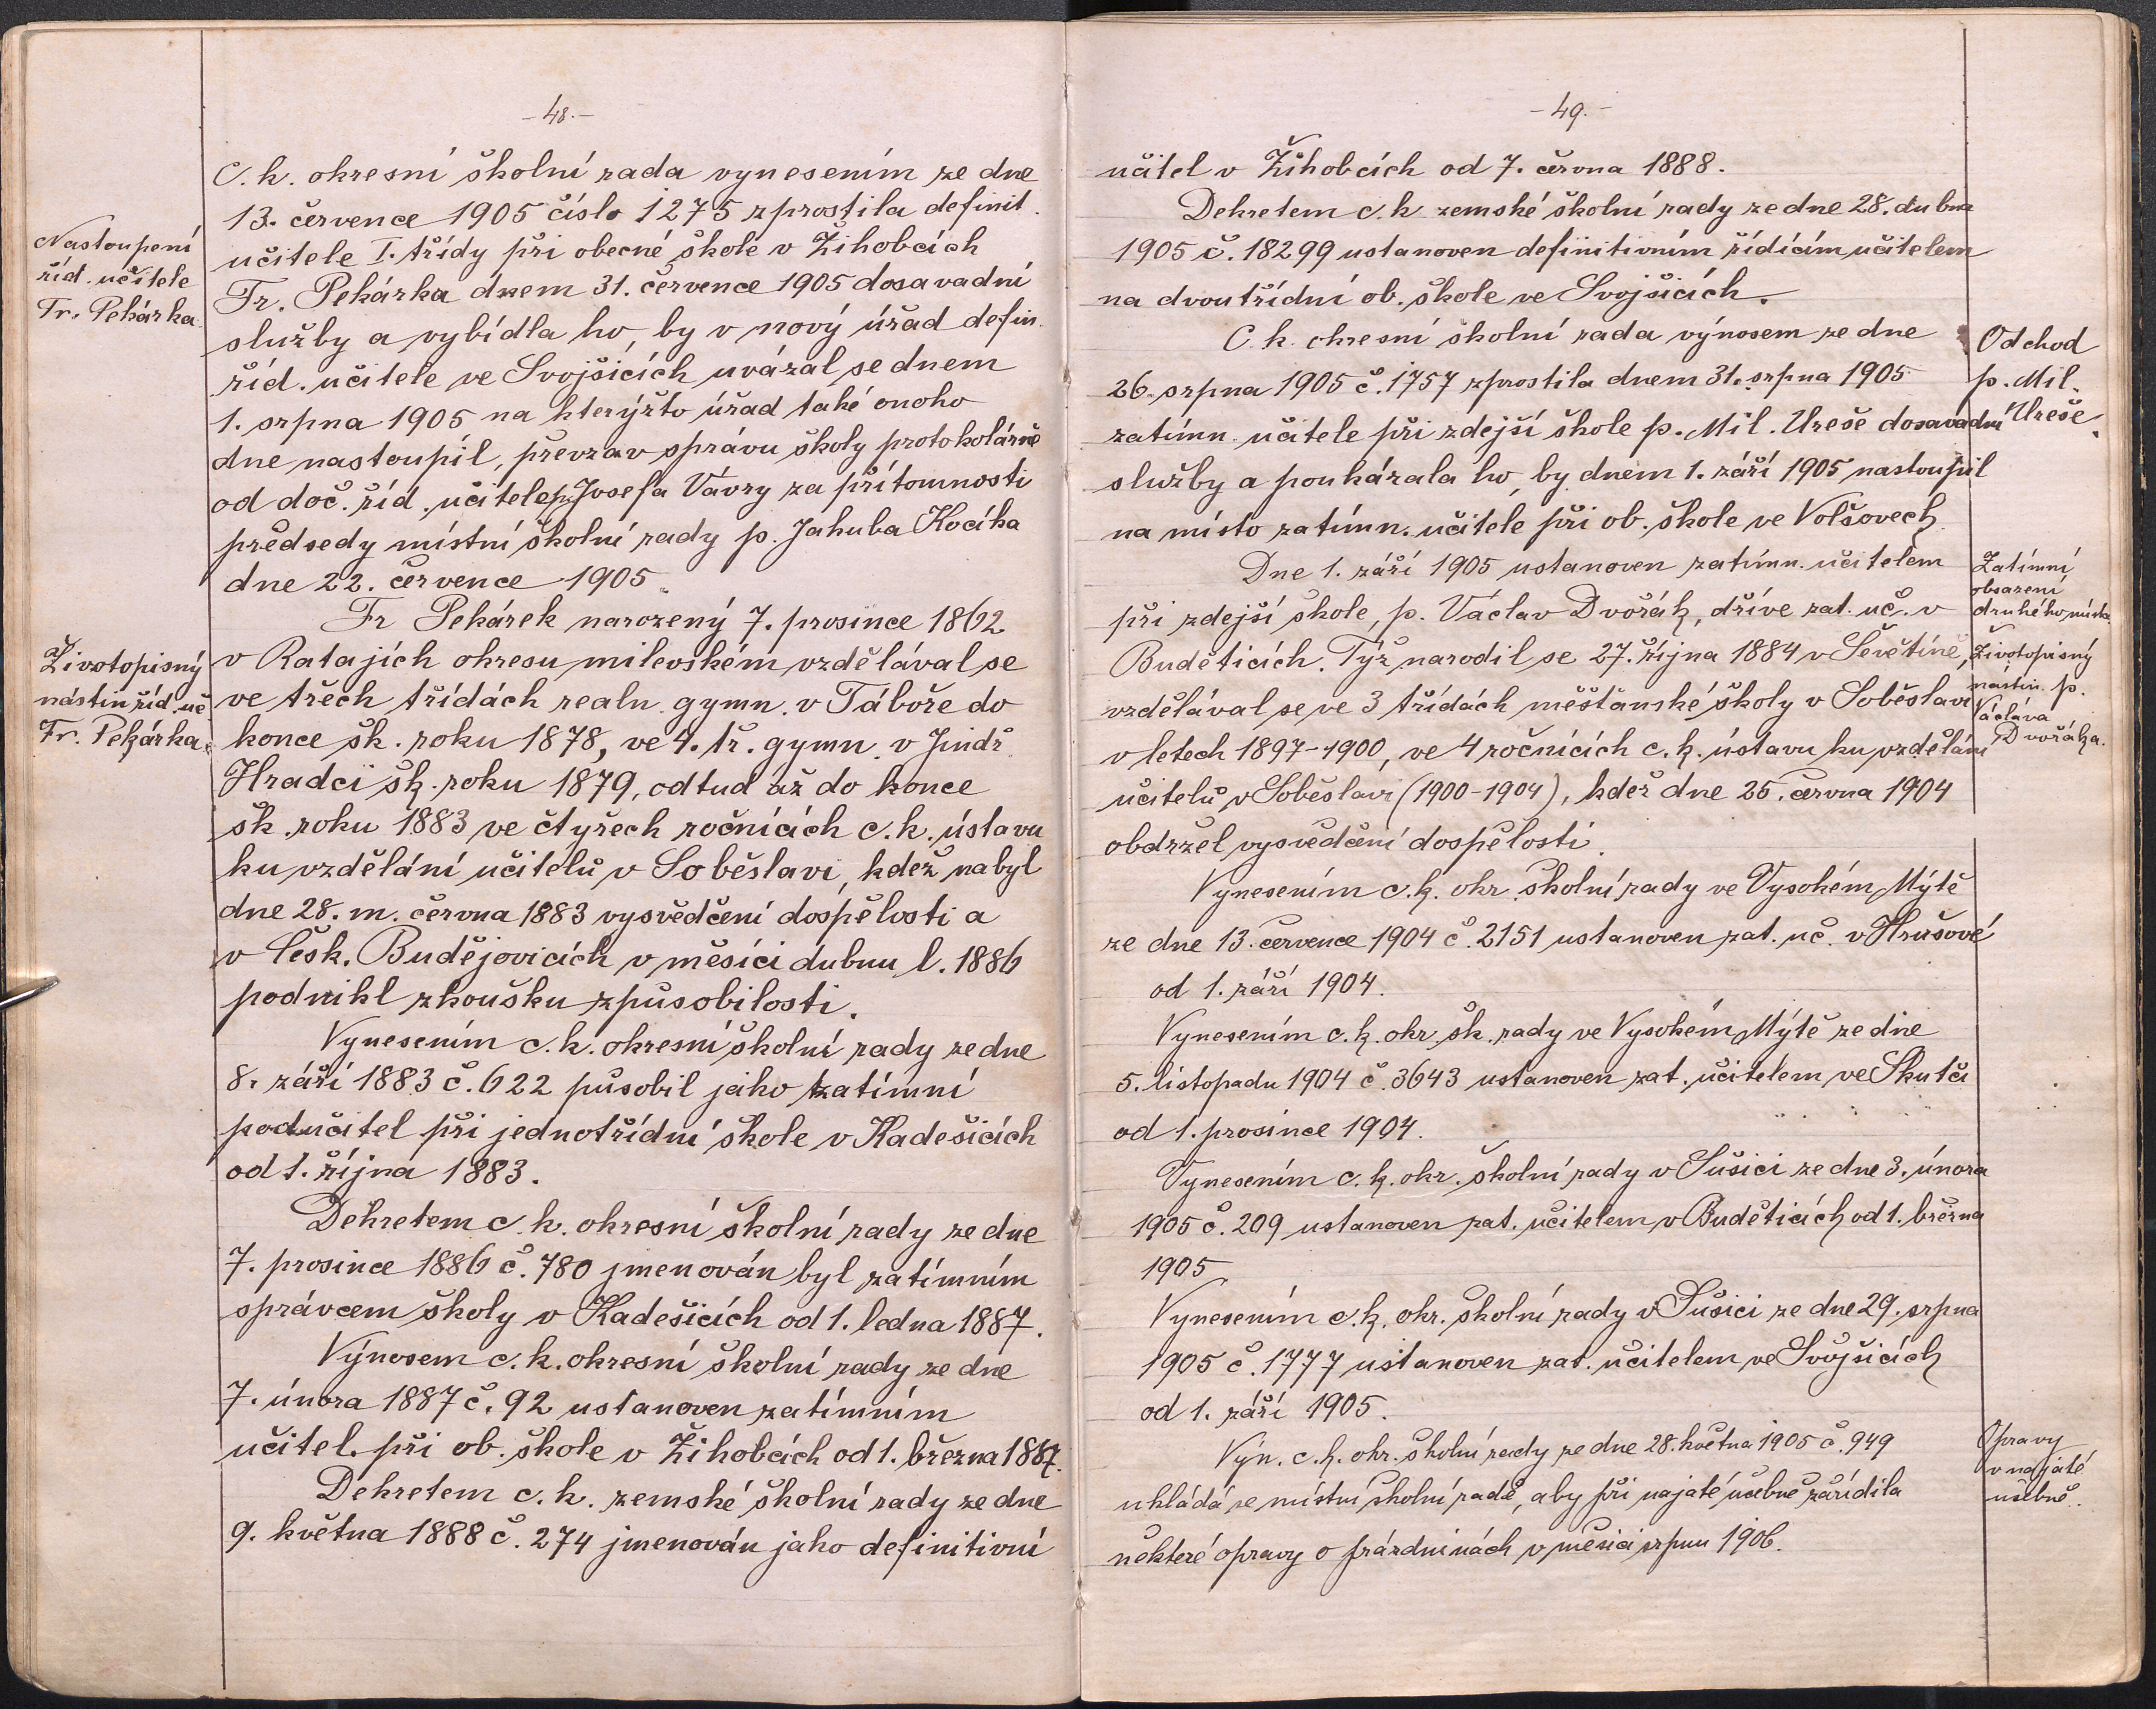 - 48. -
C. k. okresní školní rada vynesením ze dne
13. července 1905 číslo 1275 zprostila definit.
Nastoupení
říd. učitele
Fr. Pekárka.
učitele I. třídy při obecné škole v Žihobcích
Fr. Pekárka dnem 31. července 1905 dosavadní
služby a vybídla ho, by v nový úřad defin.
říd. učitele ve Svojšicích uvázal se dnem
1. srpna 1905 na kterýžto úřad také onoho
dne nastoupil, převzav správu školy protokolárně
od doč. říd. učitele p. Josefa Vávry za přítomnosti
předsedy místní školní rady p. Jakuba Kocíka
dne 22. července 1905.
Fr Pekárek narozený 7. prosince 1862
Životopisný
nástin říd. uč
Fr. Pekárka.
v Ratajích okresu milevském vzdělával se
ve třech třídách realn. gymn. v Táboře do
konce šk. roku 1878, ve 4. tř. gymn. v Jindř.
Hradci šk. roku 1879, odtud až do konce
šk. roku 1883 ve čtyřech ročnících c. k. ústavu
ku vzdělání učitelů v Soběslavi, kdež nabyl
dne 28. m. června 1883 vysvědčení dospělosti a
v Česk. Budějovicích v měsíci dubnu l. 1886
podnikl zkoušku způsobilosti.
Vynesením c. k. okresní školní rady ze dne
8. září 1883 č. 622 působil jako zatímní
podučitel při jednotřídní škole v Kadešicích
od 1. října 1883.
Dekretem c. k. okresní školní rady ze dne
7. prosince 1886 č. 780 jmenován byl zatímním
správcem školy v Kadešicích od 1. ledna 1887.
Výnosem c. k. okresní školní rady ze dne
7. února 1887 č. 92 ustanoven zatímním
učitel. při ob. škole v Žihobcích od 1. března 1887.
Dekretem c. k. zemské školní rady ze dne
9. května 1888 č. 274 jmenován jako definitivní
- 49. -
učitel v Žihobcích od 7. června 1888.
Dekretem c. k. zemské školní rady ze dne 28. dubna
1905 č. 18299 ustanoven definitivním řídícím učitelem
na dvoutřídní ob. škole ve Svojšicích.
C. k. okresní školní rada výnosem ze dne
26. srpna 1905 č. 1757 zprostila dnem 31. srpna 1905
zatímn. učitele při zdejší škole p. Mil. Ureše dosavadní
Odchod
p. Mil.
Ureše.
služby a poukázala ho, by dnem 1. září 1905 nastoupil
na místo zatímn. učitele při ob. škole ve Volšovech
Dne 1. září 1905 ustanoven zatímn. učitelem
při zdejší škole, p. Václav Dvořák, dříve zat. uč. v
Zatímní
obsazení
druhého místa
Buděticích. Týž narodil se 27. října 1884 v Ševětíně,
vzdělával se ve 3 třídách měšťanské školy v Soběslavi
v letech 1897-1900, ve 4 ročnících c. k. ústavu ku vzdělání
Životopisný
nástin p.
Václava
Dvořáka.
učitelů v Soběslavi (1900-1904), kdež dne 25. června 1904
obdržel vysvědčení dospělosti.
Vynesením c. k. okr. školní rady ve Vysokém Mýtě
ze dne 13. července 1904 č. 2151 ustanoven zat. uč. v Hrušové
od 1. září 1904.
Vynesením c. k. okr. šk. rady ve Vysokém Mýtě ze dne
5. listopadu 1904 č. 3643 ustanoven zat. učitelem ve Skutči
od 1. prosince 1904.
Vynesením c. k. okr. školní rady v Sušici ze dne 3. února
1905 č. 209 ustanoven zat. učitelem v Buděticích od 1. března
1905
Vynesením c. k. okr. školní rady v Sušici ze dne 29. srpna
1905 č. 1777 ustanoven zat. učitelem ve Svojšicích
od 1. září 1905.
Výn. c. k. okr. školní rady ze dne 28. května 1905 č. 949
ukládá se místní školní radě, aby při najaté učebně zařídila
některé opravy o prázdninách v měsíci srpnu 1906.
Opravy
v najaté
učebně.